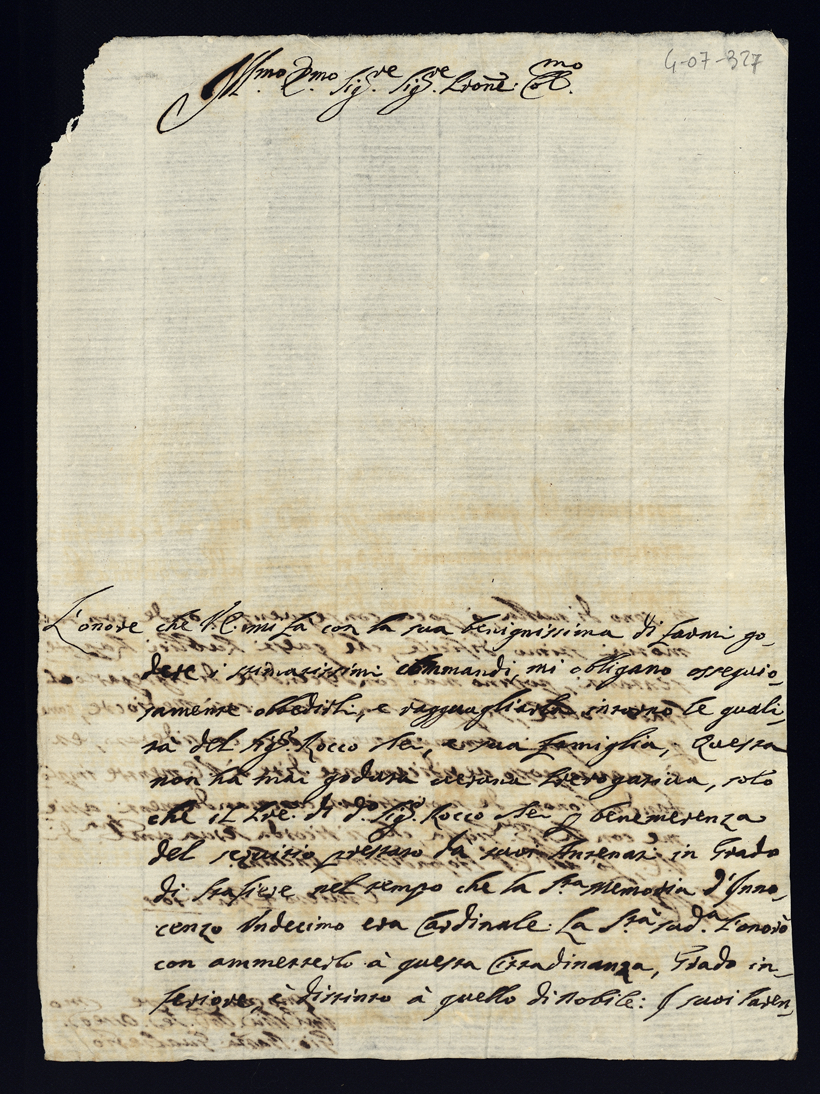 4-07-327
Ill.mo Sig.re Sig.re Prone: Col.mo
L'onore che V.S. mi fà con la sua benignissima di farmi go-
dere i stimatissimi commandi, mi obligano ossequio-
samente obbedirli, e ragguagliarla intorno le quali-
tà del Sig.r Rocco Stei, e sua famiglia, Questa
non hà mai goduta veruna prerogativa, solo
che il Pre. di d.o Sig.r Rocco Stei p benemerenza
del servizio prestato da suoi Antenati in Grado
di Stafiere nel tempo che la S.ta Memoria d'Inno-
cenzo Undecimo era Cardinale: La S.tà Sud.a l'onorò
con ammetterlo à questa Cittadinanza, Grado in-
feriore, è distinto à quello di Nobile: I suoi Paren-